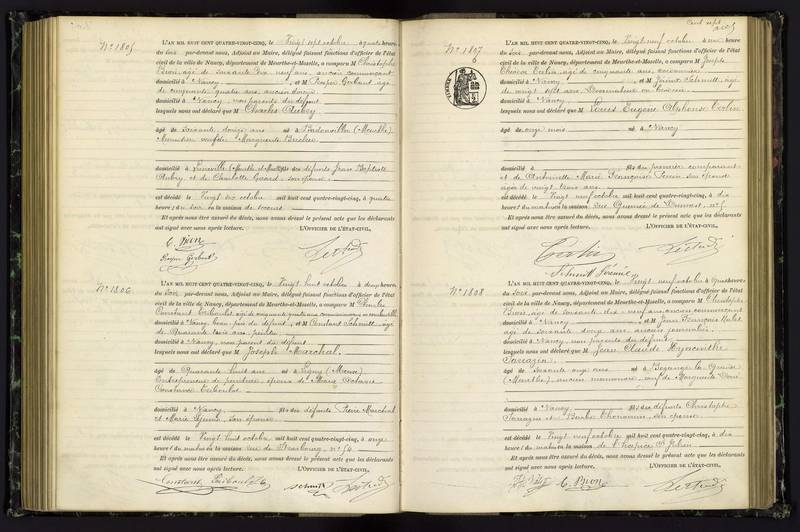 N° 1805
L'AN MIL HUIT CENT QUATRE-VINGT-CINQ, le Vingt sept octobre à quatre heures
du Soir par-devant nous, Adjoint au Maire, délégué faisant fonctions d'officier de l'état
civil de la ville de Nancy, département de Meurthe-et-Moselle, a comparu M Christophe
Brion, âgé de soixante dix neuf ans, ancien commerçant
domicilié à Nancy et M Prosper Gerbaut âgé
de cinquante quatre ans, ancien
domicilié à Nancy, non parents du défunt
lesquels nous ont déclaré que M Charles Aubry
âgé de Soixante douze ans né à Badonviller (Meurthe)
veuf de Marguerite
domicilié à Lunéville (Meurthe-et-Moselle) fils des défunts Jean Baptiste
Aubry et de Charlotte son épouse
est décédé le Vingt six octobre mil huit cent quatre-vingt-cinq, à quatre
heures du soir en la maison de secours
Et après nous être assuré du décès, nous avons dressé le présent acte que les déclarants
ont signé avec nous après lecture. L'OFFICIER DE L'ÉTAT-CIVIL,
C. Brion
N° 1806
L'AN MIL HUIT CENT QUATRE-VINGT-CINQ, le Vingt huit octobre à deux heures
du Soir par-devant nous, Adjoint au Maire, délégué faisant fonctions d'officier de l'état
civil de la ville de Nancy, département de Meurthe-et-Moselle, a comparu M Charles
Constant âgé de cinquante quatre ans
domicilié à Nancy, beau-père du défunt, et M Constant Schmitt, âgé
de Quarante trois ans, peintre
domicilié à Nancy, non parent du défunt
lesquels nous ont déclaré que M Joseph Marchal
âgé de Quarante huit ans né à Ligny (Meuse)
Entrepreneur de peinture, époux de Marie Octavie
Constance
domicilié à Nancy fils des défunts Pierre Marchal
et Marie son épouse
est décédé le Vingt huit octobre mil huit cent quatre-vingt-cinq, à onze
heures du matin en la maison rue de Strasbourg, n° 54
Et après nous être assuré du décès, nous avons dressé le présent acte que les déclarants
ont signé avec nous après lecture. L'OFFICIER DE L'ÉTAT-CIVIL,
Schmitt
Cent sept
N° 1807
L'AN MIL HUIT CENT QUATRE-VINGT-CINQ, le Vingt neuf octobre à une heure
du Soir par-devant nous, Adjoint au Maire, délégué faisant fonctions d'officier de l'état
civil de la ville de Nancy, département de Meurthe-et-Moselle, a comparu M Joseph
âgé de cinquante ans, cordonnier
domicilié à Nancy et M Jérémie Schmitt, âgé
de vingt sept ans
domicilié à Nancy
lesquels nous ont déclaré que M Louis Eugène Alphonse
âgé de onze mois né à Nancy
domicilié à fils du premier comparant
et de Antoinette Marie Françoise son épouse
âgée de vingt trois ans
est décédé le Vingt neuf octobre mil huit cent quatre-vingt-cinq, à dix
heures du matin en la maison rue
Et après nous être assuré du décès, nous avons dressé le présent acte que les déclarants
ont signé avec nous après lecture. L'OFFICIER DE L'ÉTAT-CIVIL,
Schmitt Jérémie
N° 1808
L'AN MIL HUIT CENT QUATRE-VINGT-CINQ, le Vingt neuf octobre à quatre heures
du Soir par-devant nous, Adjoint au Maire, délégué faisant fonctions d'officier de l'état
civil de la ville de Nancy, département de Meurthe-et-Moselle, a comparu M Christophe
Brion, âgé de soixante dix-neuf ans, ancien commerçant
domicilié à Nancy et M Jean François
âgé de soixante douze ans, ancien journalier
domicilié à Nancy, non parents du défunt
lesquels nous ont déclaré que M Jean Claude Hyacinthe
Sarrazin
âgé de Soixante onze ans né à Bezange la Grande
(Meurthe), ancien manœuvre, veuf de Marguerite
domicilié à Nancy fils des défunts Christophe
Sarrazin et Barbe son épouse
est décédé le Vingt neuf octobre mil huit cent quatre-vingt-cinq, à dix
heures du matin en la maison de l'hospice St Julien
Et après nous être assuré du décès, nous avons dressé le présent acte que les déclarants
ont signé avec nous après lecture. L'OFFICIER DE L'ÉTAT-CIVIL,
C. Brion